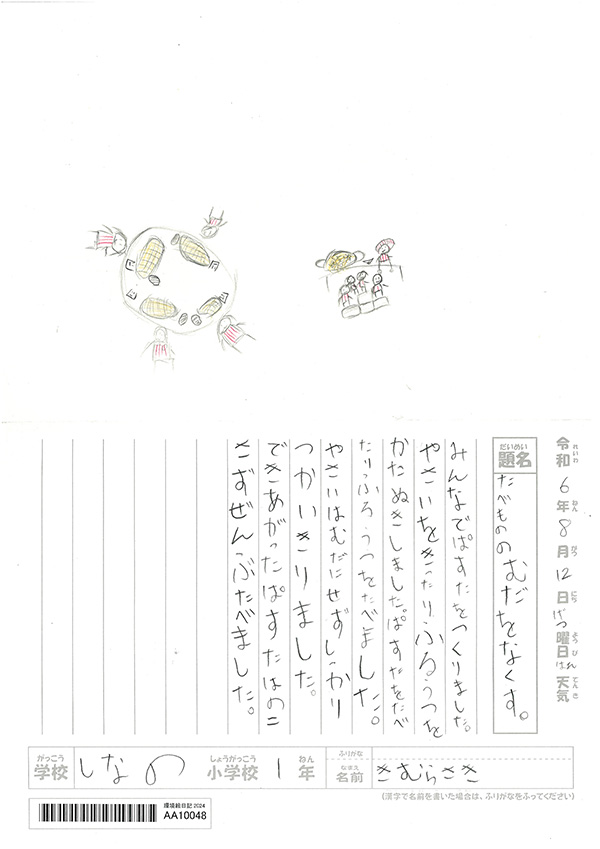 令和6年8月12日げつ曜日はれ天気
れいわ ねん がつ にち ようび てんき
だいめい
題名
たべもののむだをなくす。
みんなでぱすたをつくりました。
やさいをきったりふるうつを
かたぬきしました。ぱすたをたべ
たりふるうつをたべました。
やさいはむだにせずしっかり
つかいきりました。
できあがったぱすたはのこ
さずぜんぶたべました。
がっこう しょうがっこう ねん ふりがな なまえ
学校 しなの 小学校 1年 名前 きむらさき
(漢字で名前を書いた場合は、ふりがなをふってください)
環境絵日記2024
AA10048